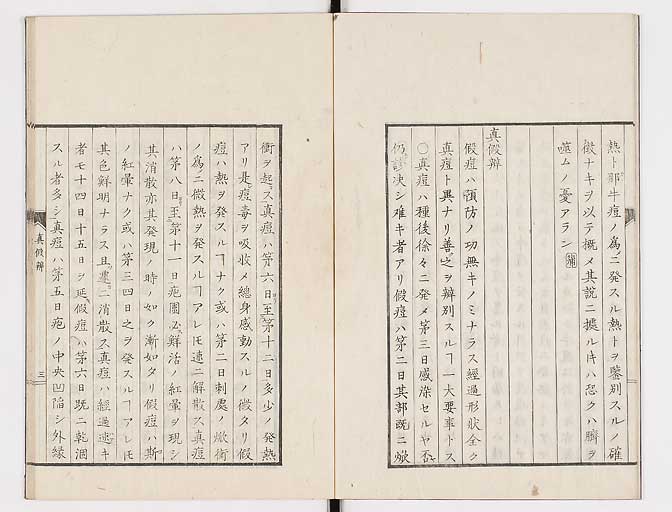 熱ト部牛痘ノ為ニ発スル熱トヲ鑒別スルノ確
徴ナキヲ以テ概メ其説ニ據ル片ハ恐クハ臍ヲ
噬ムノ憂アラン
真假辨
假痘ハ預防ノ功無キノミナラス經過形状全ク
真痘ト異ナリ善之ヲ辨別スルヿ一大要事トス
○真痘ハ種後徐々ニ発メ第三日感染セルヤ否
仍診决シ難キ者アリ假痘ハ第二日其部既ニ焮
衝ヲ起ス真痘ハ第六日至第十二日多少ノ発熱
アリ是痘毒ヲ吸收メ總身感動スルノ微タリ假
痘ハ熱ヲ発スルヿナク或ハ第二日刺處ノ焮衝
ノ為ニ微熱ヲ発スルヿアレ𪜈速ニ解散ス真痘
ハ第八日至第十一日疱圍必鮮活ノ紅暈ヲ現シ
其消散亦其発現ノ時ノ如ク漸如タリ假痘ハ斯
ノ紅暈ナク或ハ第三四日之ヲ発スルヿアレ𪜈
其色鮮明ナラス且速ニ消散ス真痘ハ經過遅キ
者モ十四日十五日ヲ延假痘ハ第六日既ニ乾涸
スル者多シ真痘ハ第五日疱ノ中央凹陥シ外縁
真假辨
三